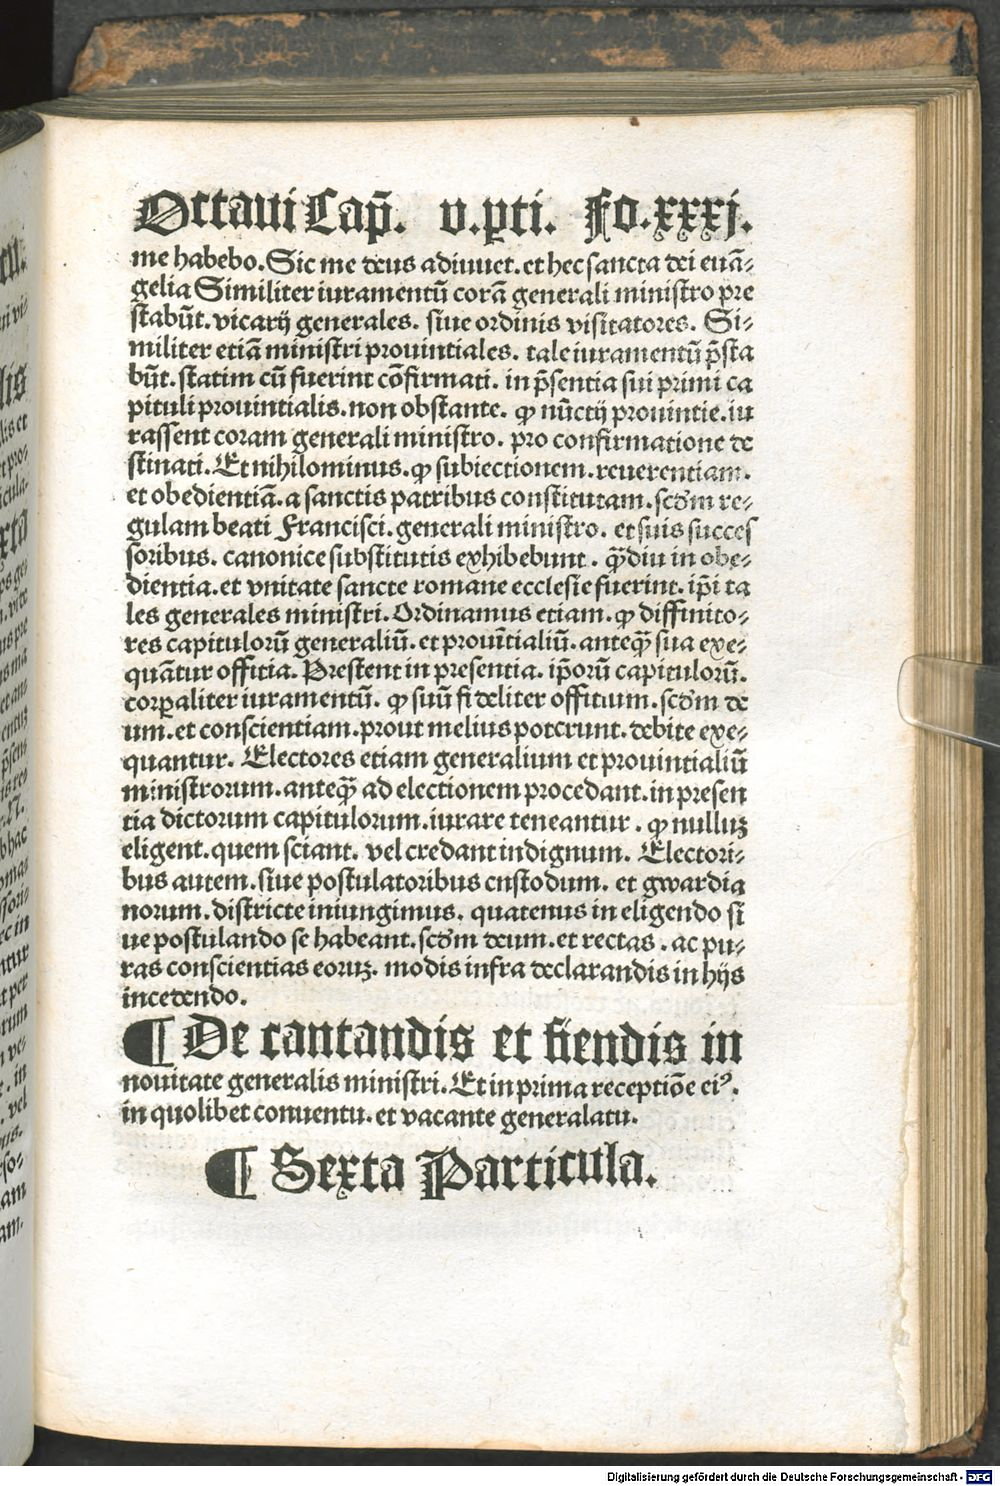 Octaui Cap̄. v.pti. Fo.xxxj.
me habebo. Sic me deus adiuuet. et hec sancta dei euā⸗
gelia Similiter iuramentū corā generali ministro pre
stabūt. vicarij generales. siue ordinis visitatores. Si⸗
militer etiā ministri prouintiales. tale iuramentū p̄sta
būt. statim cū fuerint cōfirmati. in p̄sentia sui primi ca
pituli prouintialis. non obstante. ꝙ nūctij prouintie. iu
rassent coram generali ministro. pro confirmatione de
stinati. Et nihilominus. ꝙ subiectionem. reuerentiam.
et obedientiā. a sanctis patribus constitutam. scdm re⸗
gulam beati Francisci. generali ministro. et suis succes
soribus. canonice substitutis exhibebunt. ꝙ̄diu in obe⸗
dientia. et vnitate sancte romane ecclesie fuerint. ip̄i ta
les generales ministri. Ordinamus etiam. ꝙ diffinito⸗
res capitulorū generaliū. et prouītialiū. anteꝙ̄ sua exe⸗
quātur offitia. Prestent in presentia. ip̄orū capitulorū.
corꝑaliter iuramentū. ꝙ suū fideliter offitium. scdm de
um. et conscientiam. prout melius poterunt. debite exe⸗
quantur. Electores etiam generalium et prouintialiū
ministrorum. anteꝙ̄ ad electionem procedant. in presen
tia dictorum capitulorum. iurare teneantur. ꝙ nulluꝫ
eligent. quem sciant. vel credant indignum. Electori⸗
bus autem. siue postulatoribus cnstodum. et gwardia
norum. districte iniungimus. quatenus in eligendo si
ue postulando se habeant. scdm deum. et rectas. ac pu⸗
ras conscientias eoruꝫ. modis infra declarandis in hijs
incedendo.
¶ De cantandis et fiendis in
nouitate generalis ministri. Et in prima receptiōe eiꝰ.
in quolibet conuentu. et vacante generalatu.
¶ Sexta Particula.
Digitalisierung gefördert durch die Deutsche Forschungsgemeinschaft - DFG